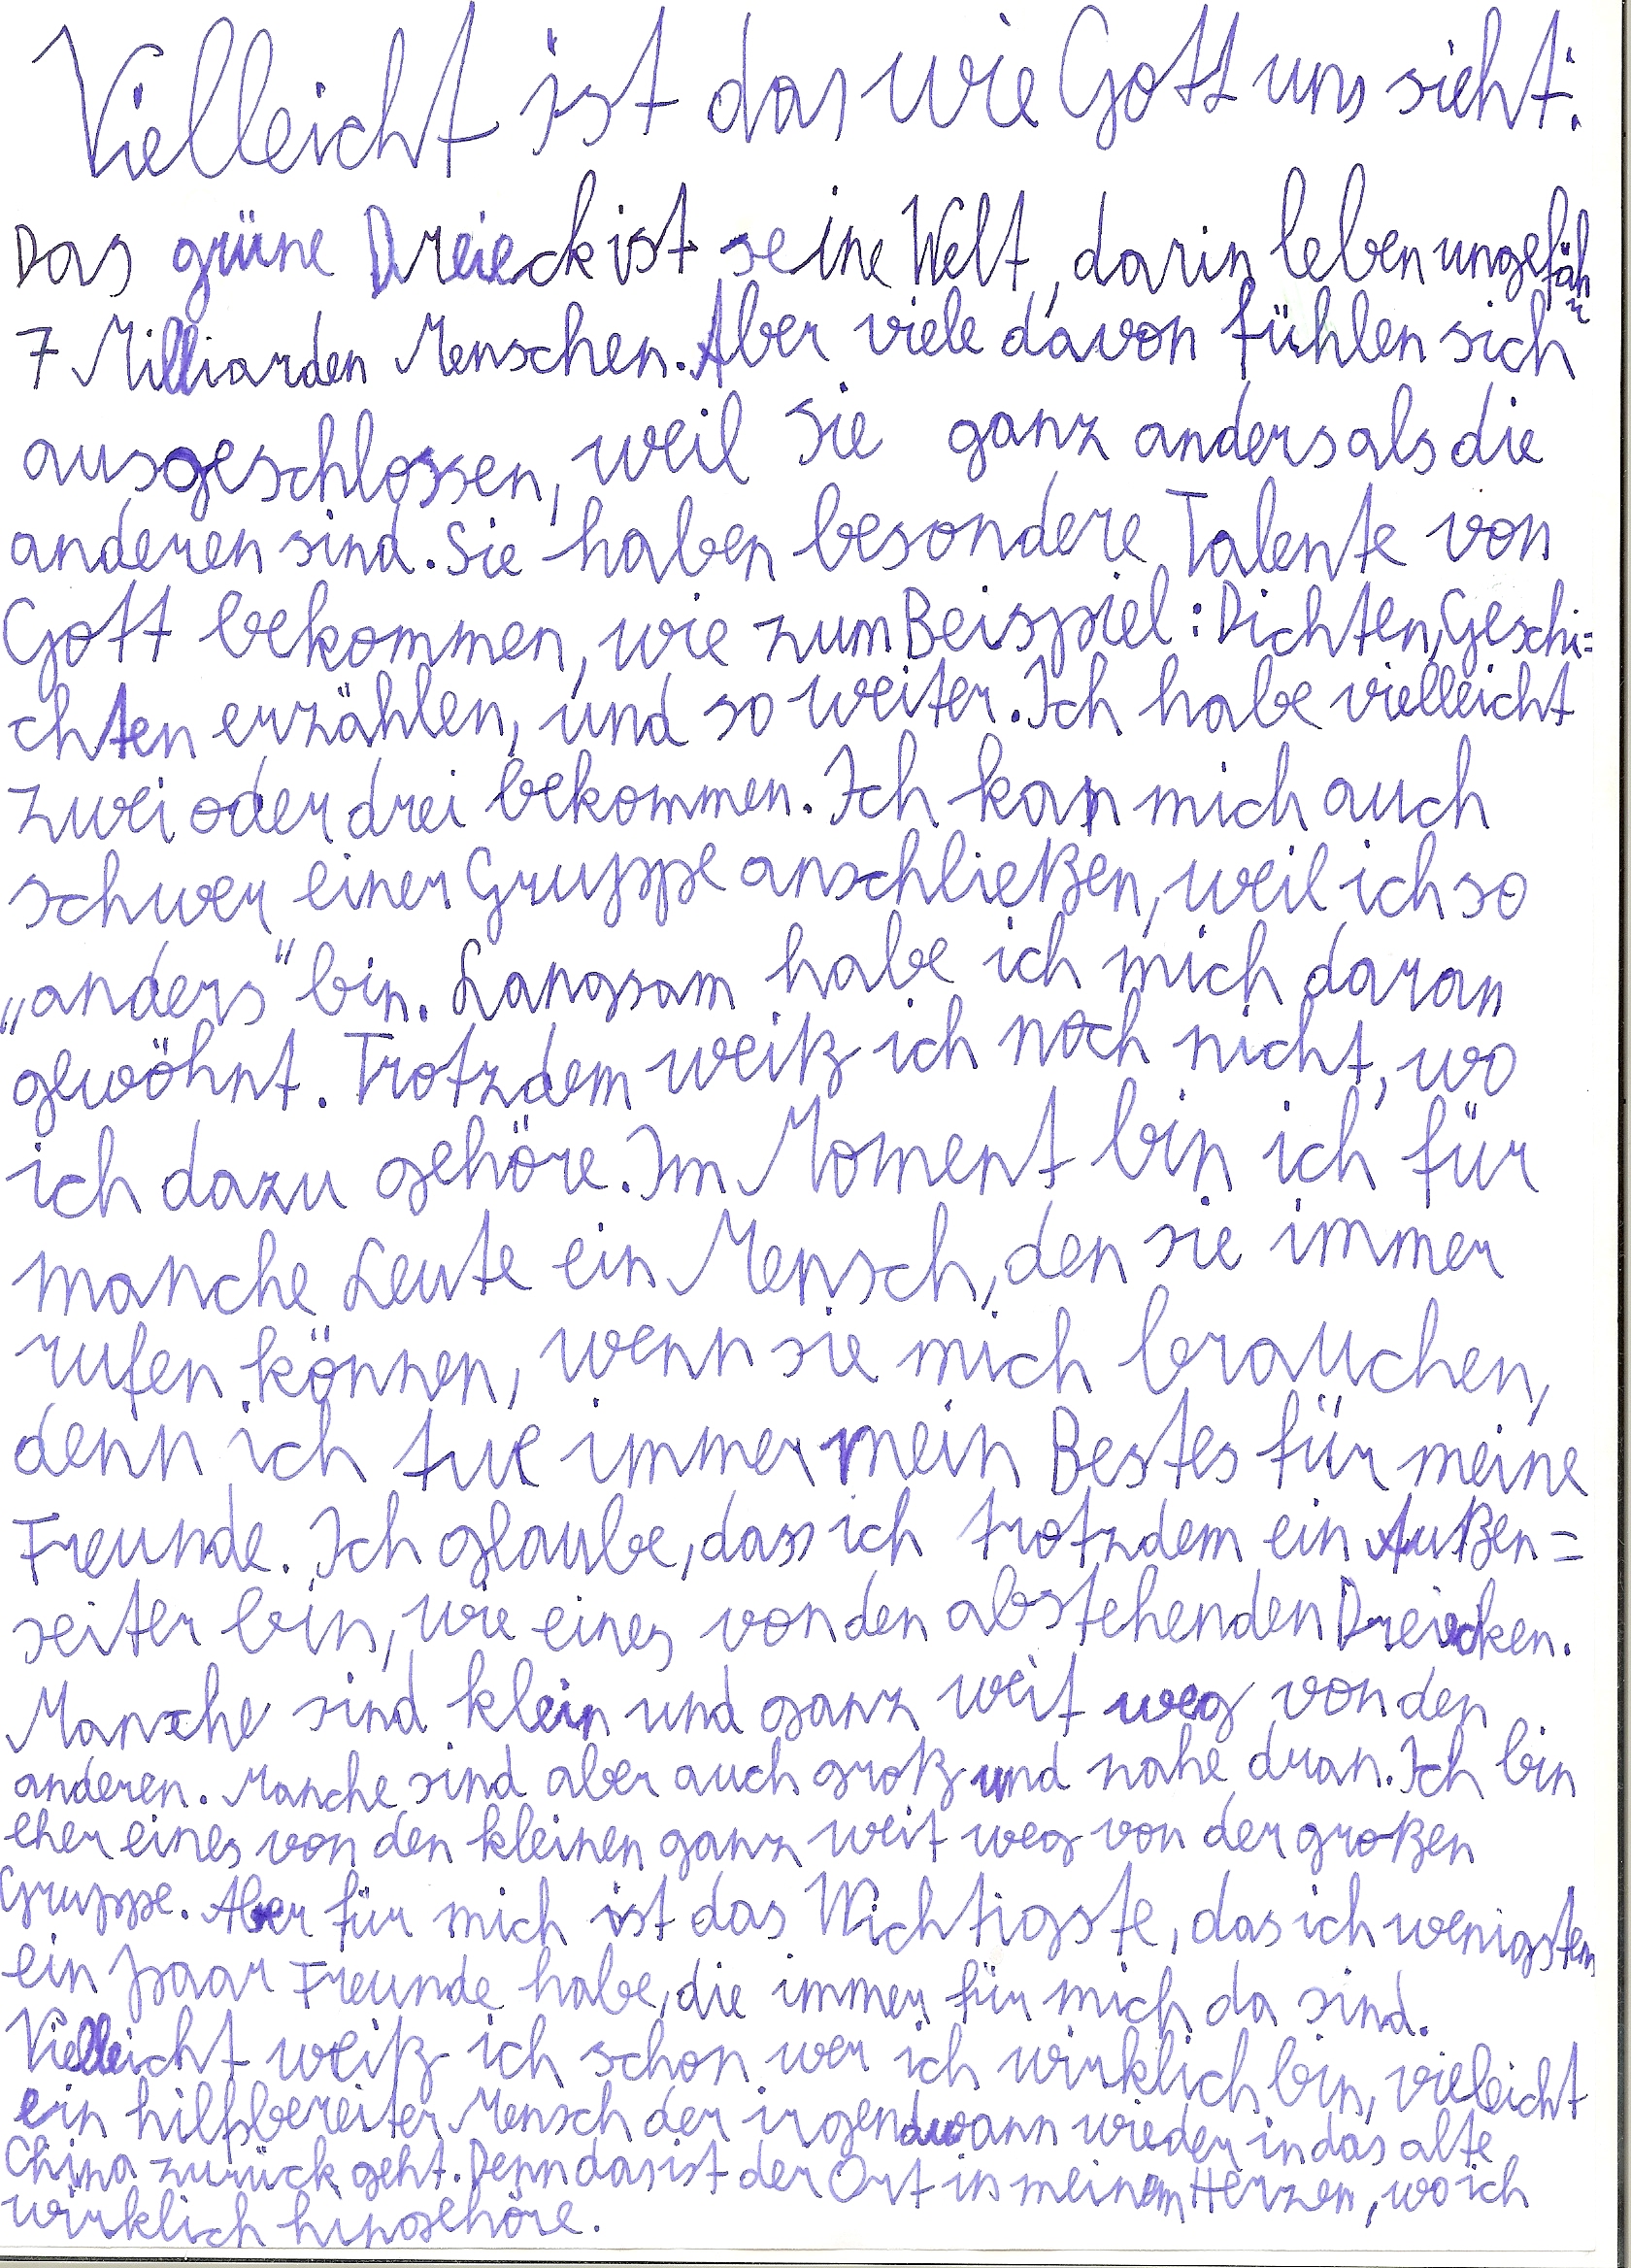 Vielleicht ist das wie Gott uns sieht:
Das grüne Dreieck ist seine Welt, darin leben ungefähr
7 Milliarden Menschen. Aber viele davon fühlen sich
ausgeschlossen, weil sie ganz anders als die
anderen sind. Sie haben besondere Talente von
Gott bekommen, wie zum Beispiel: Dichten, Geschi=
chten erzählen, und so weiter. Ich habe vielleicht
zwei oder drei bekommen. Ich kan mich auch
schwer einer Gruppe anschließen, weil ich so
„anders" bin. Langsam habe ich mich daran
gewöhnt. Trotzdem weiß ich noch nicht, wo
ich dazu gehöre. Im Moment bin ich für
manche Leute ein Mensch, den sie immer
rufen können, wenn sie mich brauchen,
denn ich tue immer mein Bestes für meine
Freunde. Ich glaube, dass ich trotzdem ein Außen=
seiter bin, wie eines von den abstehenden Dreiecken.
Manche sind klein und ganz weit weg von den
anderen. Manche sind aber auch groß und nahe dran. Ich bin
eher eines von den kleinen ganz weit weg von der großen
Gruppe. Aber für mich ist das Wichtigste, das ich wenigstens
ein paar Freunde habe, die immer für mich da sind.
Vielleicht weiß ich schon wer ich wirklich bin, vieleicht
ein hilfsbereiter Mensch der irgendwann wieder in das alte
China zurück geht. Denn das ist der Ort in meinem Herzen, wo ich
wirklich hingehöre.